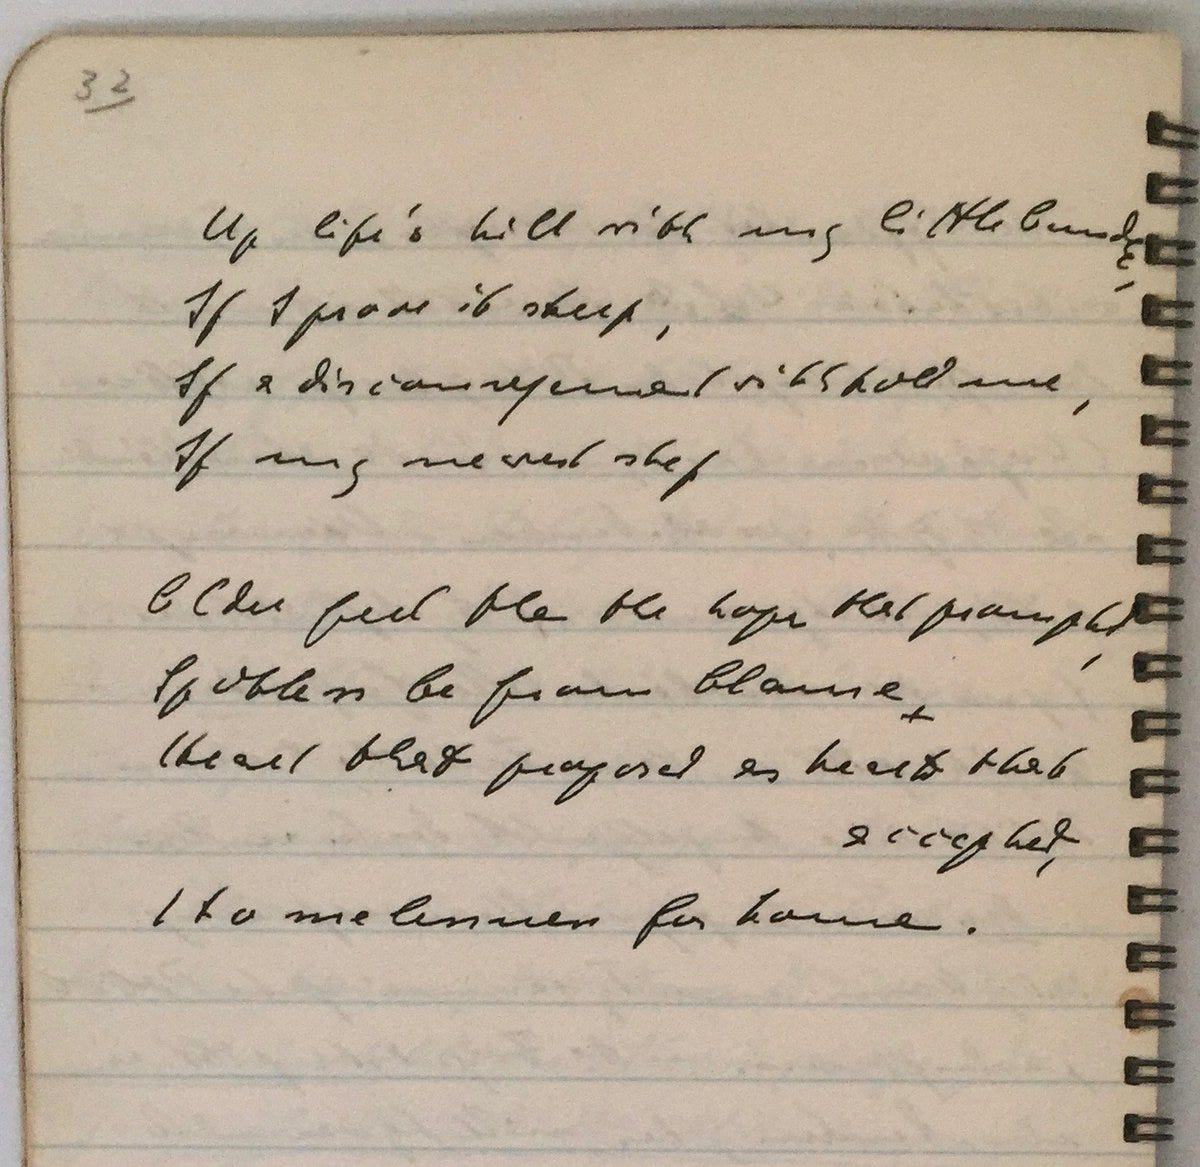 32
Up life's hill with my little bundle,
If I prove it steep,
If a discouragement withhold me,
If my newest step
Older feel than the hope that prompted,
Spotless be from blame
Heart that proposed as heart that
accepted,
Homelessness for home.